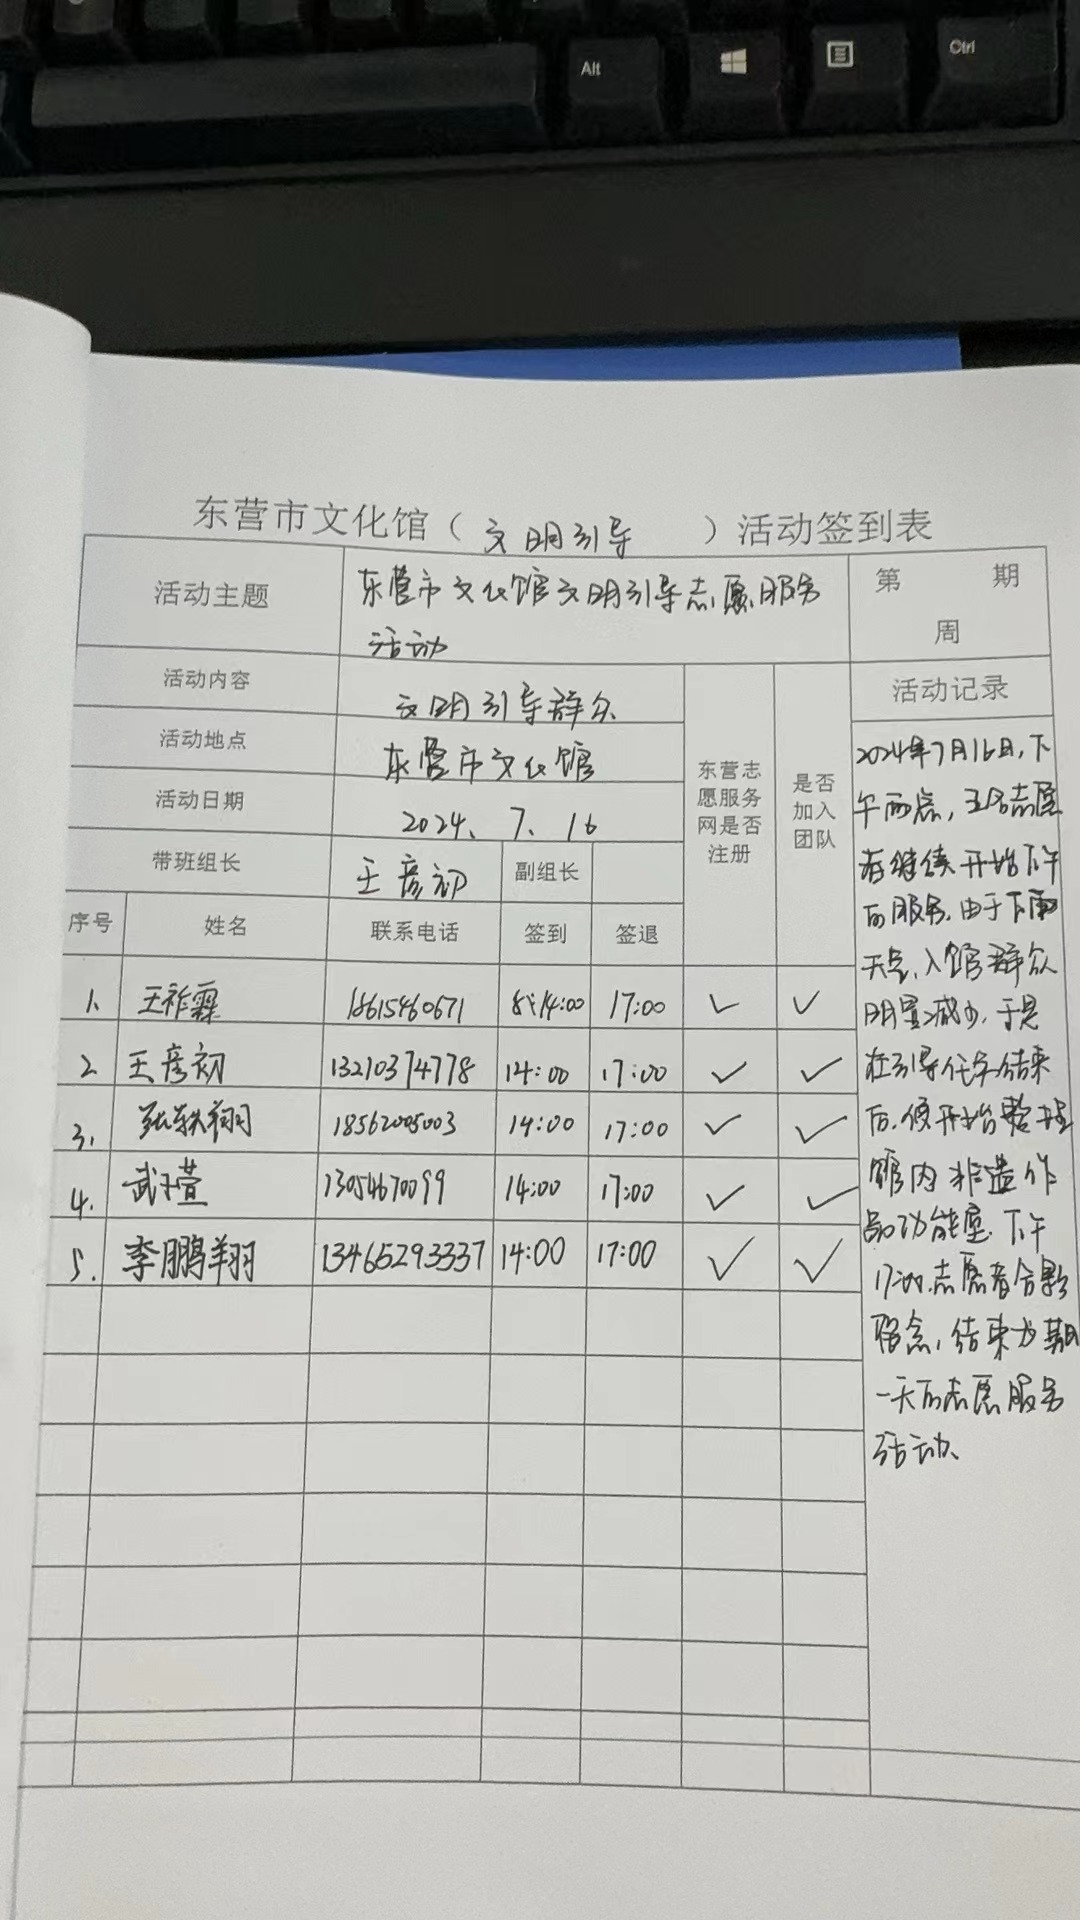 Alt
Ctrl
东营市文化馆（文明引导）活动签到表
活动主题
东营市文化馆文明引导志愿服务
活动
第 期
周
活动内容
文明引导群众
活动地点
东营市文化馆
活动日期
2024、7、16
带班组长
王彦初
副组长
东营志
愿服务
网是否
注册
是否
加入
团队
活动记录
序号 姓名 联系电话 签到 签退
1、 王祚霖 18615460671 14:00 17:00 ✓ ✓
2 王彦初 13210374778 14:00 17:00 ✓ ✓
3. 张轶翔 18562005003 14:00 17:00 ✓ ✓
4. 武子萱 13054670099 14:00 17:00 ✓ ✓
5. 李鹏翔 13465293337 14:00 17:00 ✓ ✓
2024年7月16日,下
午两点，五名志愿
者继续开始下午
的服务.由于下雨
天气,入馆群众
明显减少,于是
在引导任务结束
后,便开始整理
馆内非遗作
品功能室.下午
17:00,志愿者合影
留念,结束为期
一天的志愿服务
活动、